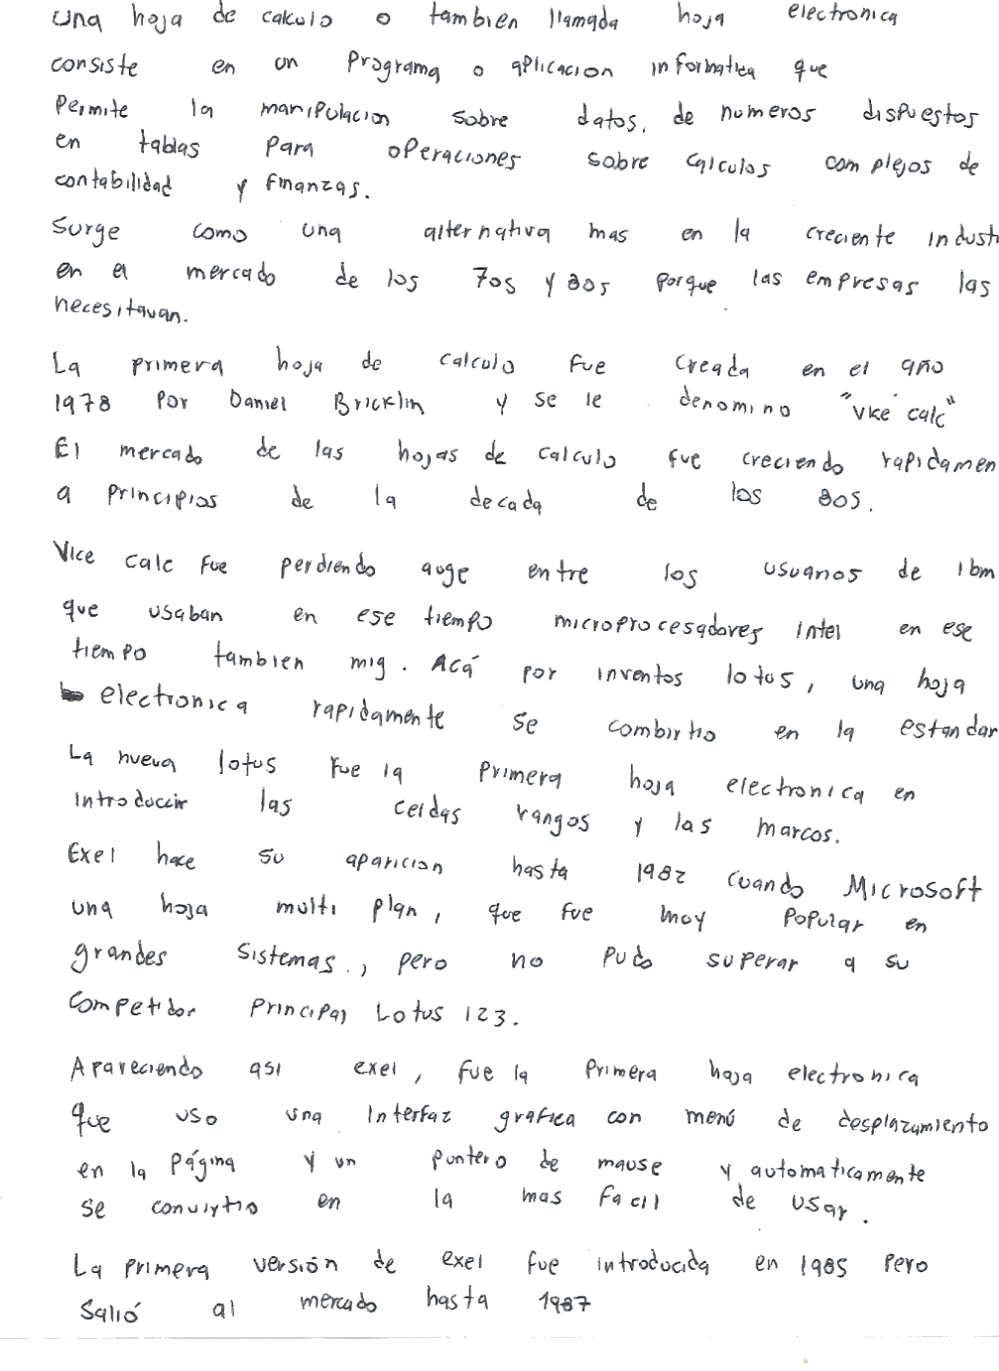 una hoja de calculo o tambien llamada hoja electronica
consiste en un programa o aplicacion informatica que
permite la manipulacion sobre datos, de numeros dispuestos
en tablas para operaciones sobre calculos complejos de
contabilidad y finanzas.
Surge como una alternativa mas en la creciente indust
en el mercado de los 70s y 80s porque las empresas las
necesitavan.
La primera hoja de calculo fue creada en el año
1978 por Daniel Bricklin y se le denomino "vice calc"
El mercado de las hojas de calculo fue creciendo rapidamen
a principios de la decada de los 80s.
Vice calc fue perdiendo auge entre los usuarios de ibm
que usaban en ese tiempo microprocesadores intel en ese
tiempo tambien mig. Acá por inventos lotus, una hoja
electronica rapidamente se combirtio en la estandar
La nueva lotus fue la primera hoja electronica en
introduccir las celdas rangos y las marcos.
Exel hace su aparicion hasta 1982 cuando Microsoft
una hoja multi plan, que fue muy popular en
grandes sistemas., pero no pudo superar a su
competidor principal Lotus 123.
Apareciendo asi exel, fue la primera hoja electronica
que uso una interfaz grafica con menú de desplazamiento
en la página y un puntero de mause y automaticamente
se convirtio en la mas facil de usar.
La primera versión de exel fue introducida en 1985 pero
salió al mercado hasta 1987